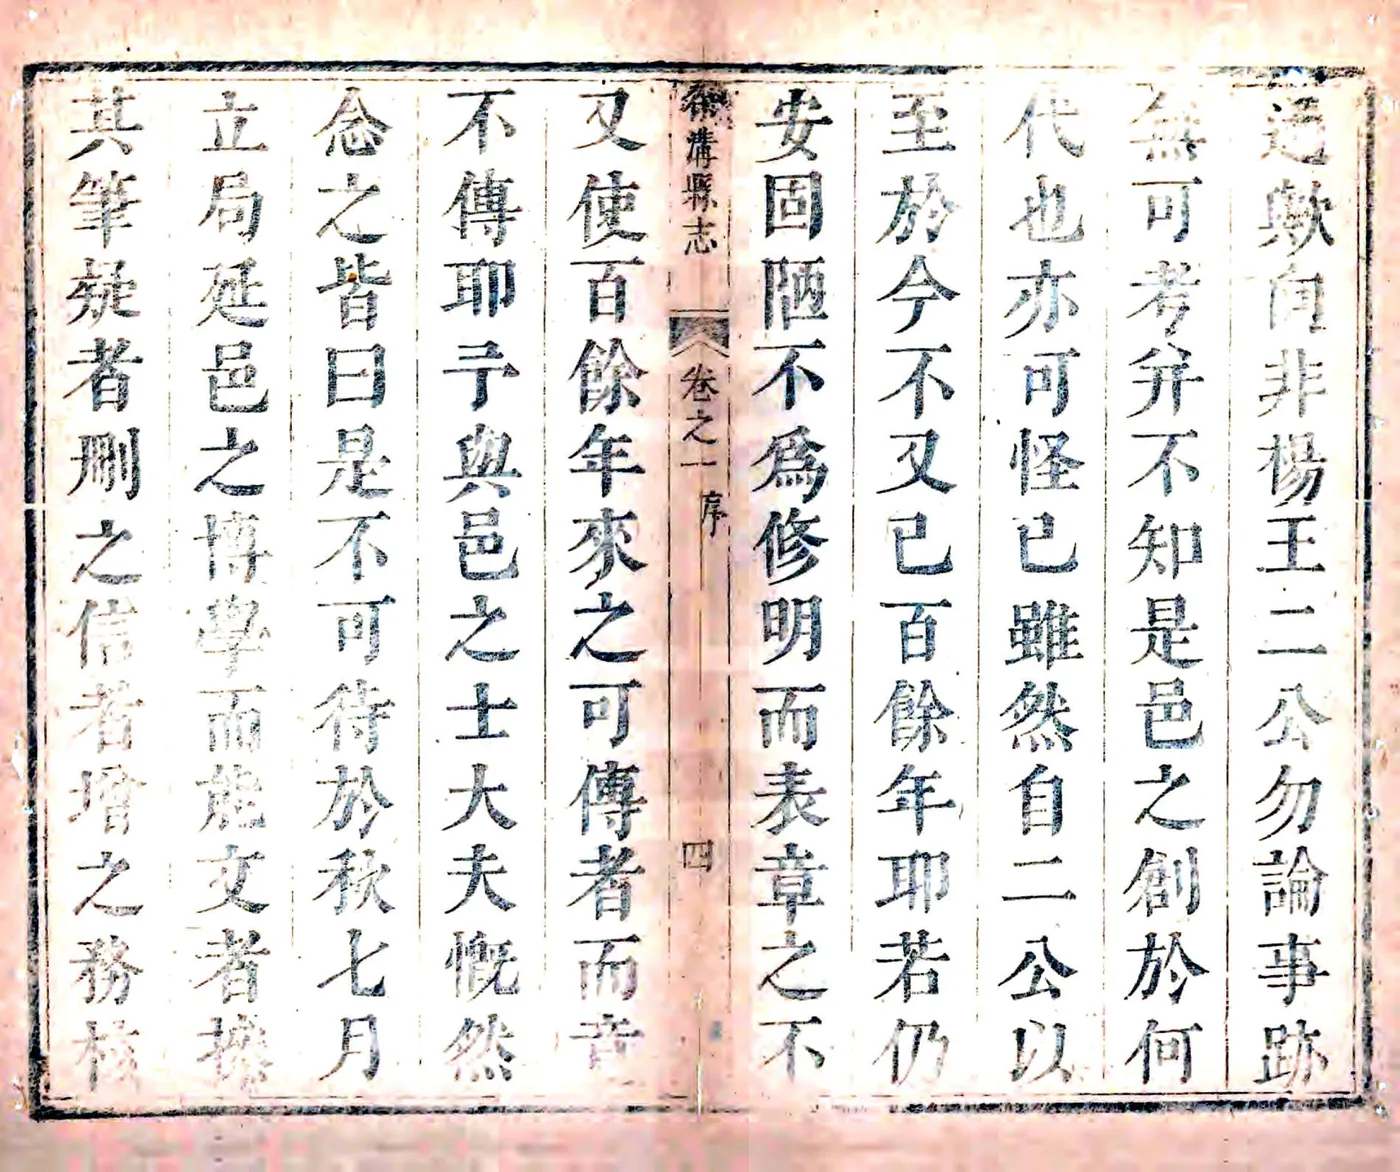 過歟向非楊王二公勿論事跡
無可考并不知是邑之創於何
代也亦可怪已雖然自二公以
至於今不又已百餘年耶若仍
安固陋不爲修明而表章之不
徐溝縣志 卷之一 序 四
又使百餘年來之可傳者而竟
不傳耶予與邑之士大夫慨然
念之皆曰是不可待於秋七月
立局延邑之博學而能文者操
其筆疑者刪之信者增之務核